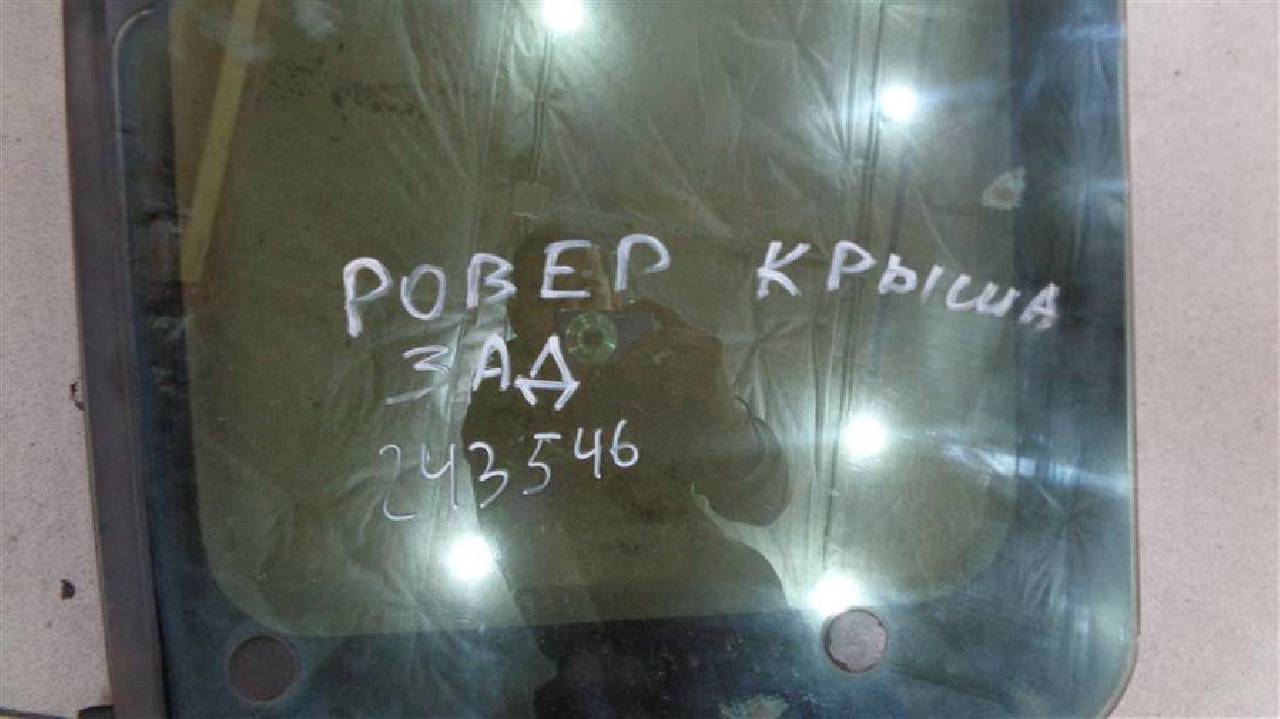 РОВЕР КРЫША
ЗАД
243546